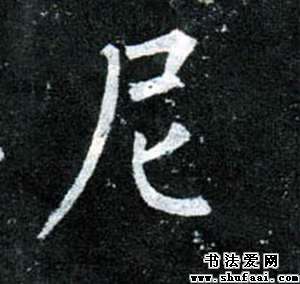 尼
书法爱网
www.shufaai.com